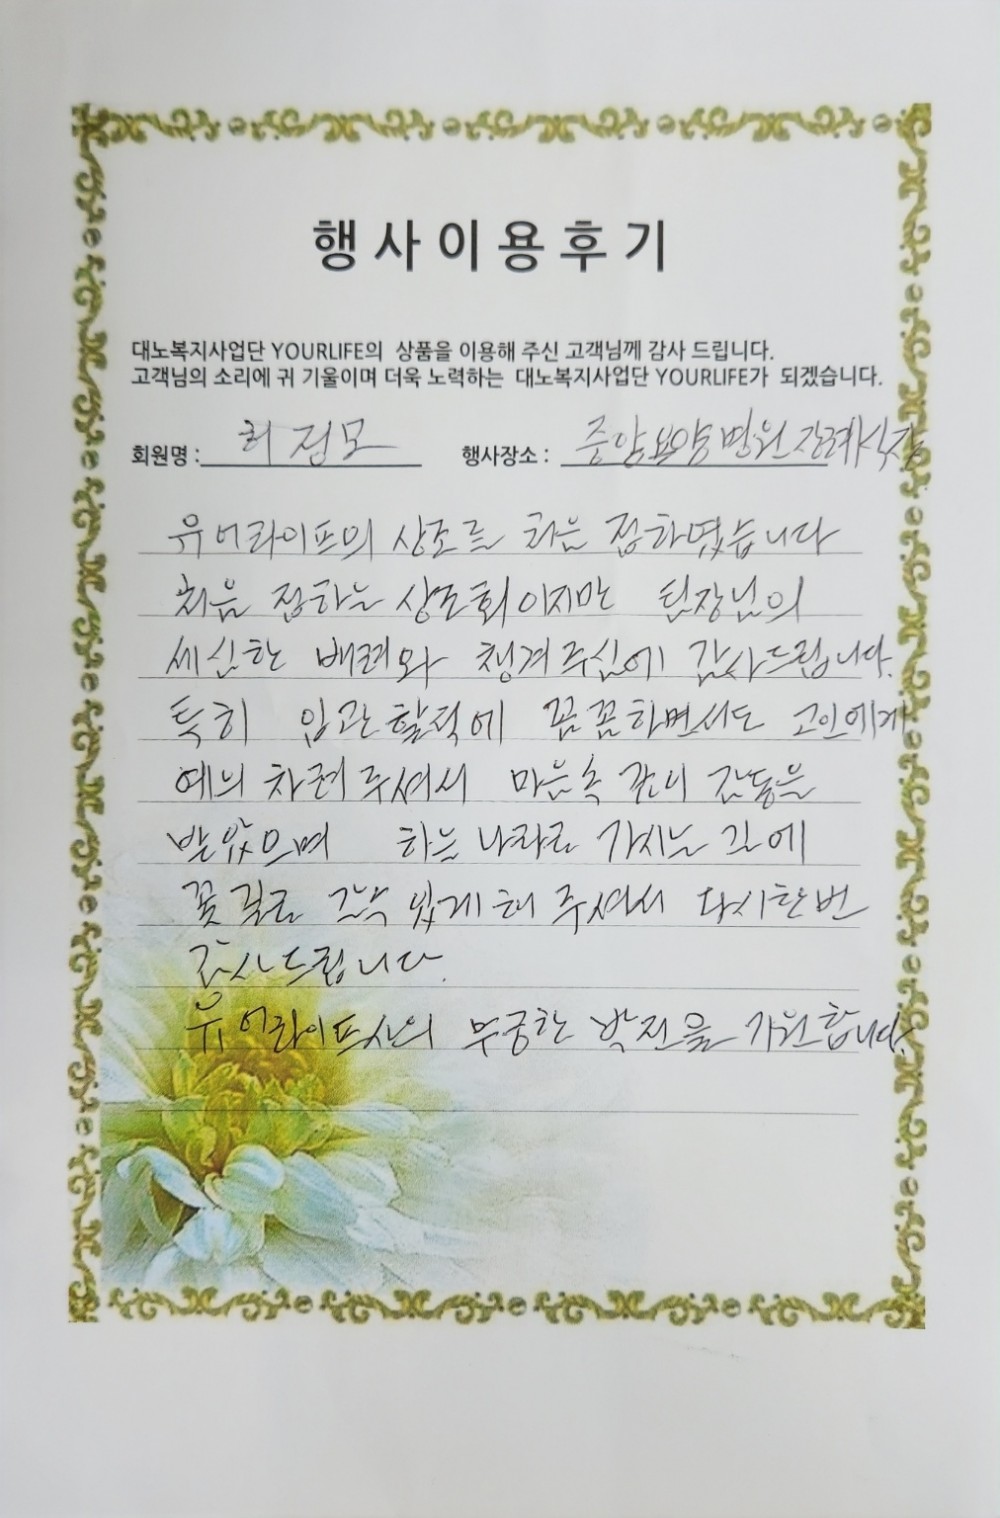 행사이용후기
대노복지사업단 YOURLIFE의 상품을 이용해 주신 고객님께 감사 드립니다.
고객님의 소리에 귀 기울이며 더욱 노력하는 대노복지사업단 YOURLIFE가 되겠습니다.
회원명 : 허점모 행사장소 : 중앙요양병원장례식장
유어라이프의 상조를 처음 접하였습니다
처음 접하는 상조회이지만 팀장님의
세심한 배려와 챙겨주심에 감사드립니다.
특히 입관할적에 꼼꼼하면서도 고인에게
예의 차려주셔서 마음속 깊이 감동을
받았으며 하늘나라로 가시는 길에
꽃길로 갈수 있게 해 주셔서 다시한번
감사드립니다.
유어라이프사의 무궁한 발전을 기원합니다.